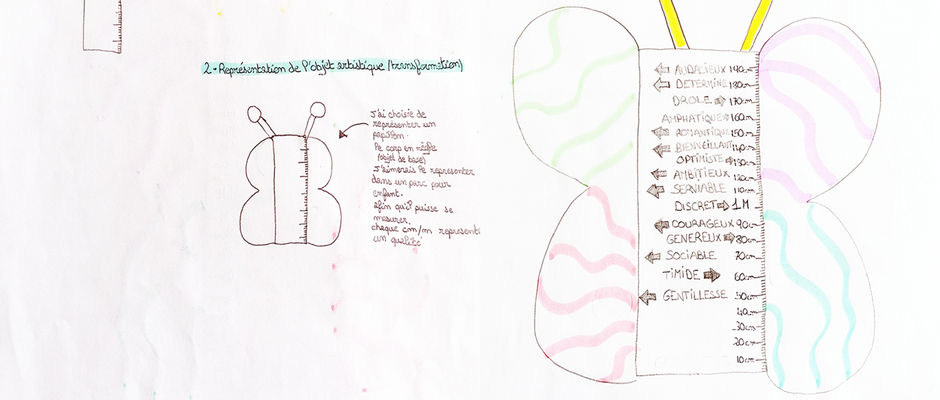 2 - Représentation de l'objet artistique (transformation)
J'ai choisie de
représenter un
papillon.
Le corp en règle
(objet de base)
J'aimerais le representer
dans un parc pour
enfant.
afin qu'il puisse se
mesurer.
chaque cm/m represente
un qualité
AUDACIEUX 190cm
DETERMINE 180cm
DROLE 170cm
AMPHATIQUE 160cm
ROMANTIQUE 150cm
BIENVEILLANT 140cm
OPTIMISTE 130cm
AMBITIEUX 120cm
SERVIABLE 110cm
DISCRET 1M
COURAGEUX 90cm
GENEREUX 80cm
SOCIABLE 70cm
TIMIDE 60cm
GENTILLESSE 50cm
40cm
30cm
20cm
10cm